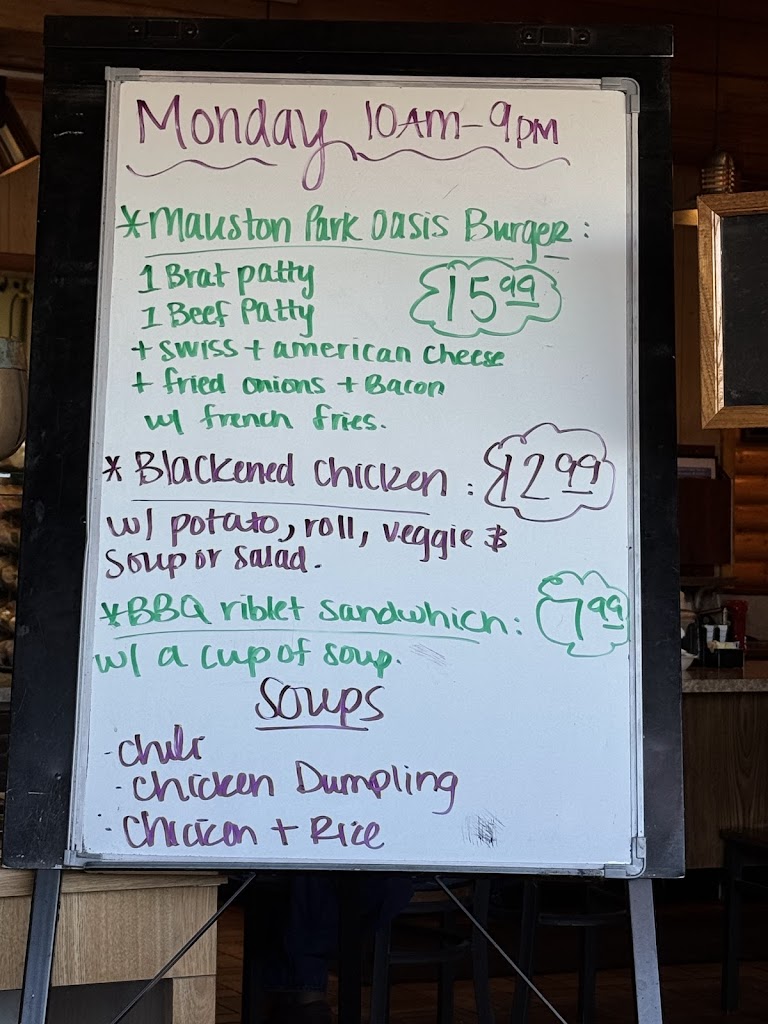 Monday 10AM-9PM
*Mauston Park Oasis Burger:
1 Brat patty
15.99
1 Beef Patty
+ swiss + american cheese
+ fried onions + Bacon
w/ french fries.
*Blackened chicken: 12.99
w/ potato, roll, veggie &
soup or salad.
*BBQ riblet sandwhich: 7.99
w/ a cup of soup.
Soups
- Chili
- Chicken Dumpling
- Chicken + Rice